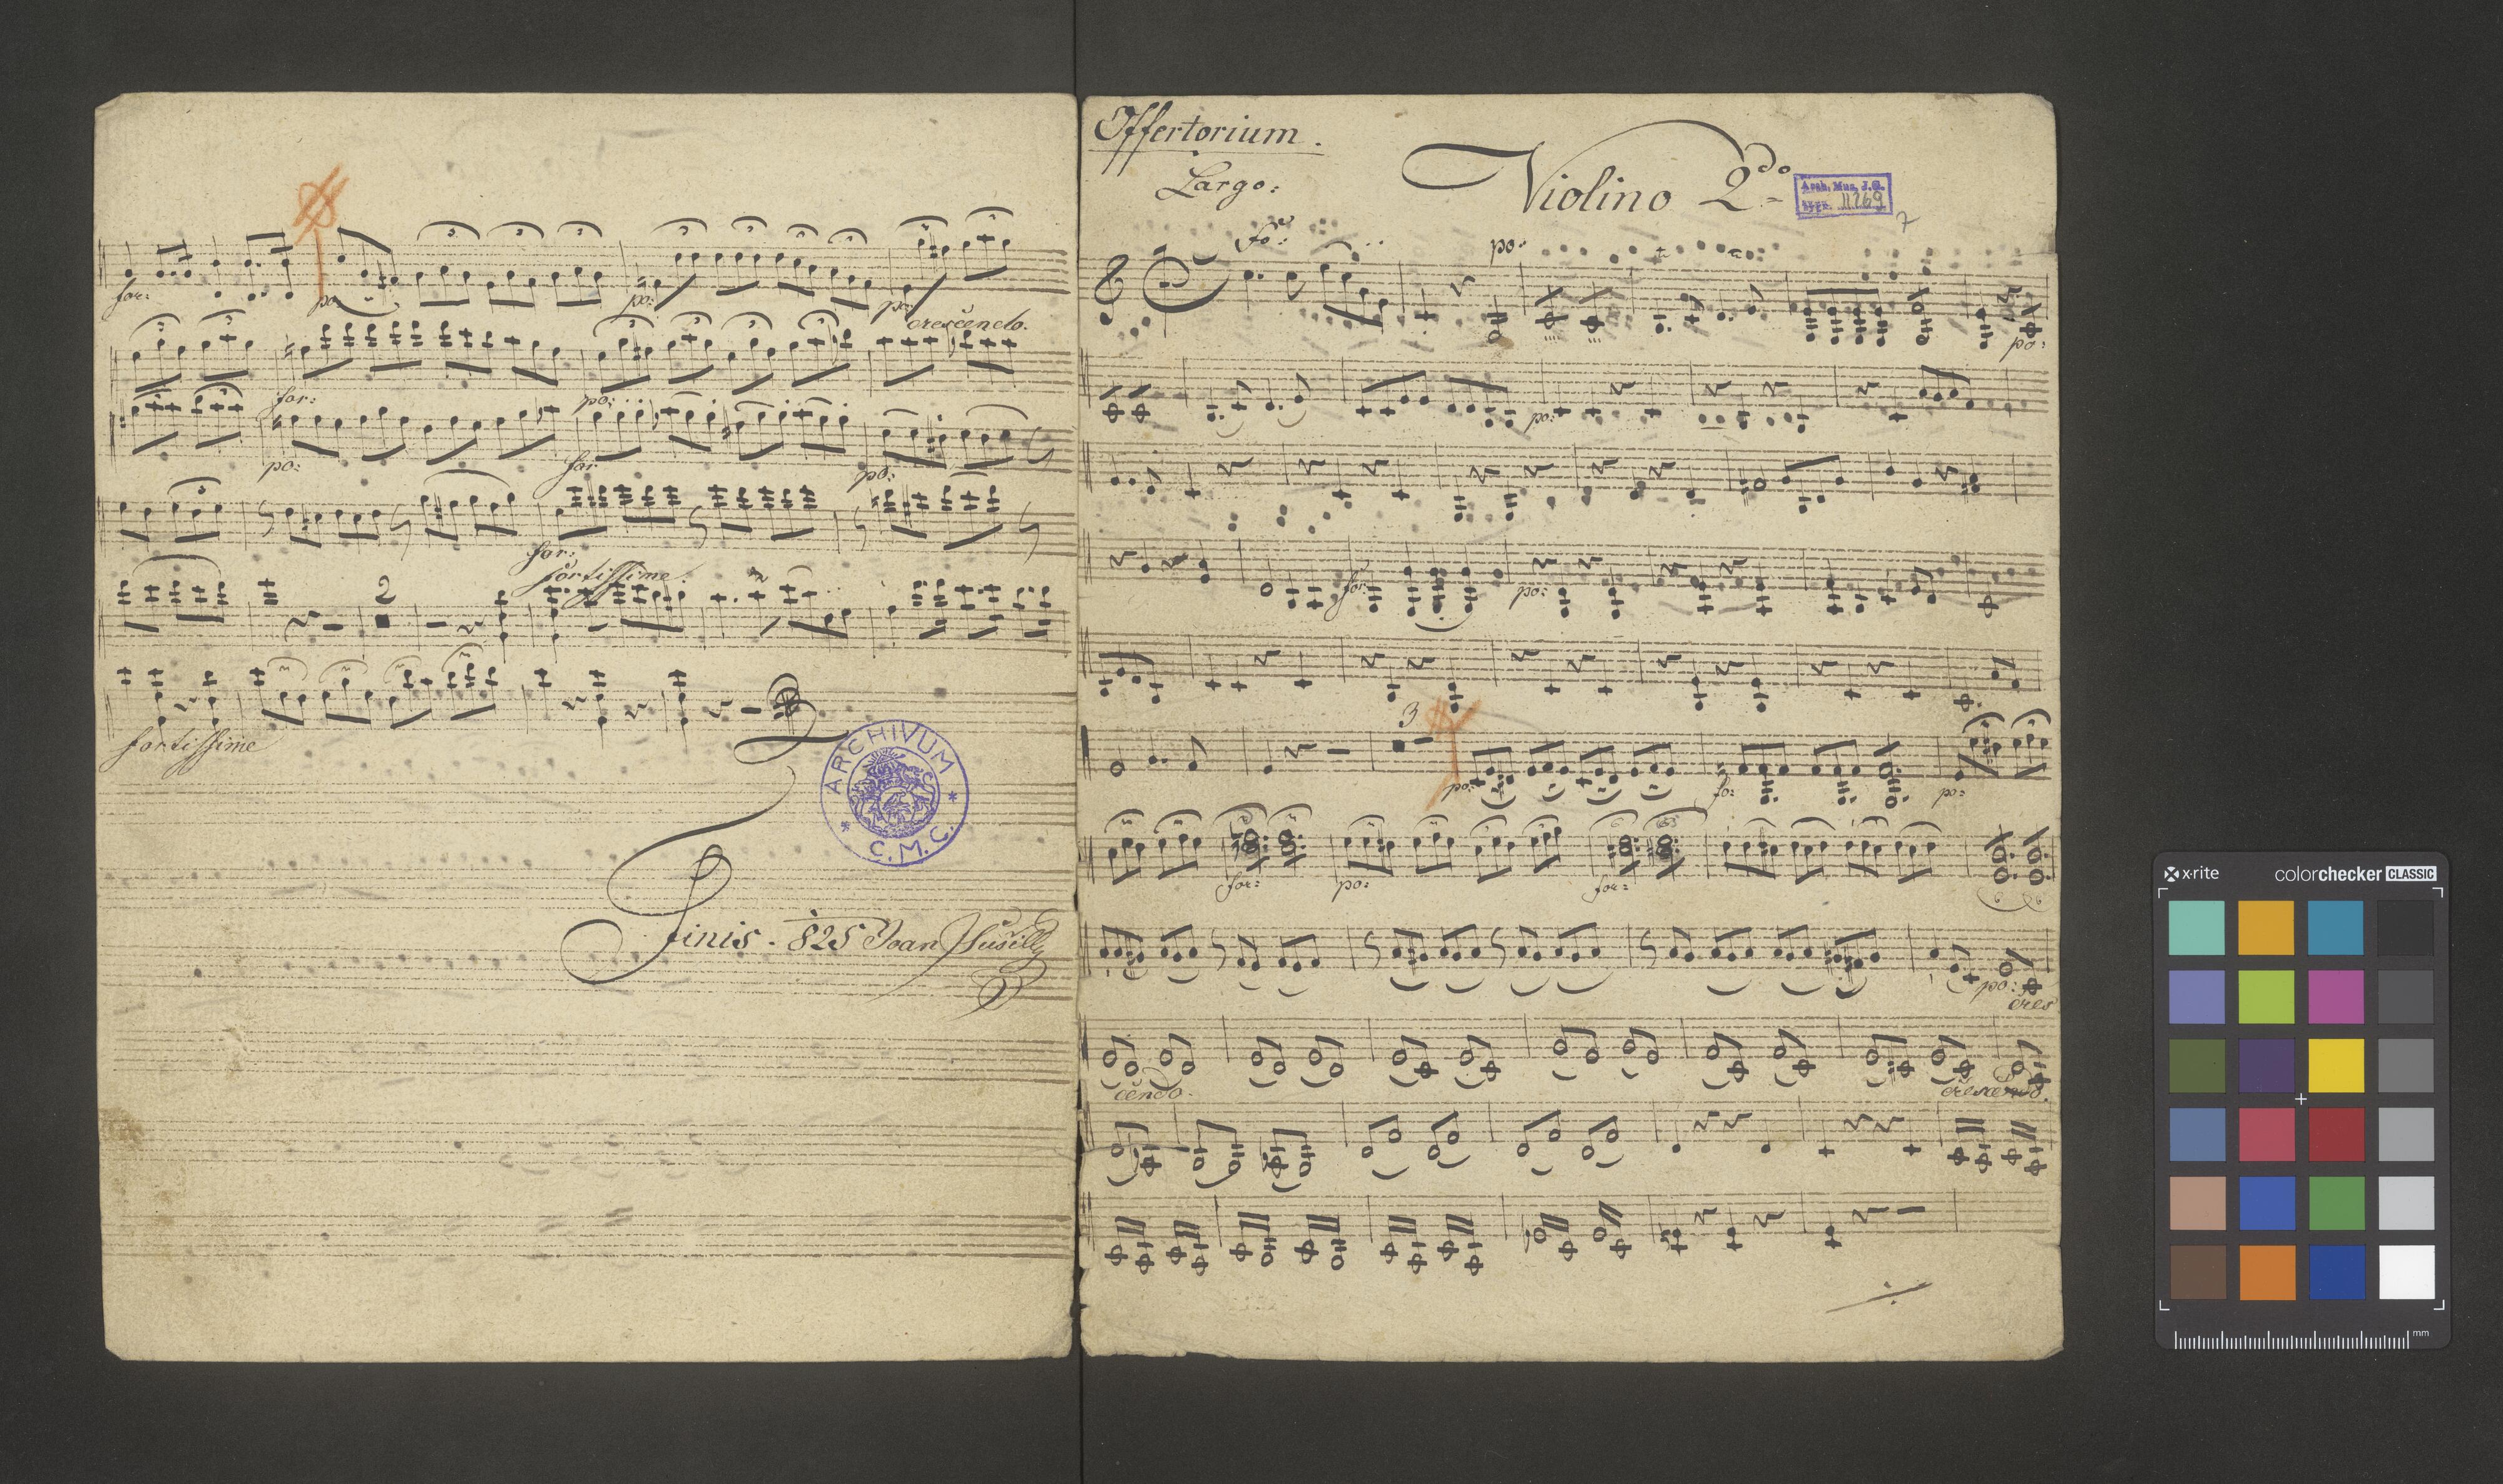 for:
po:
po:
po:
crescendo.
for:
po:
po:
for
po:
for:
fortissime.
2
fortissime
ARCHIVUM
C.M.C.
Finis. 825 Joan
Offertorium.
Largo:
Violino 2do
Arch. Mus. J.G.
11269
7
Fo:
po:
po:
po:
for:
po:
3
po:
fo:
po:
for:
po:
for:
po:
cres
cendo.
crescendo.
x·rite
colorchecker CLASSIC
mm